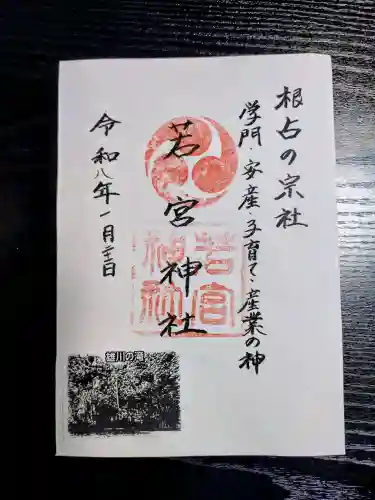 根占の宗社
学門・安産・子育て・産業の神
若宮神社
若宮神社
令和八年一月二十二日
雄川の滝